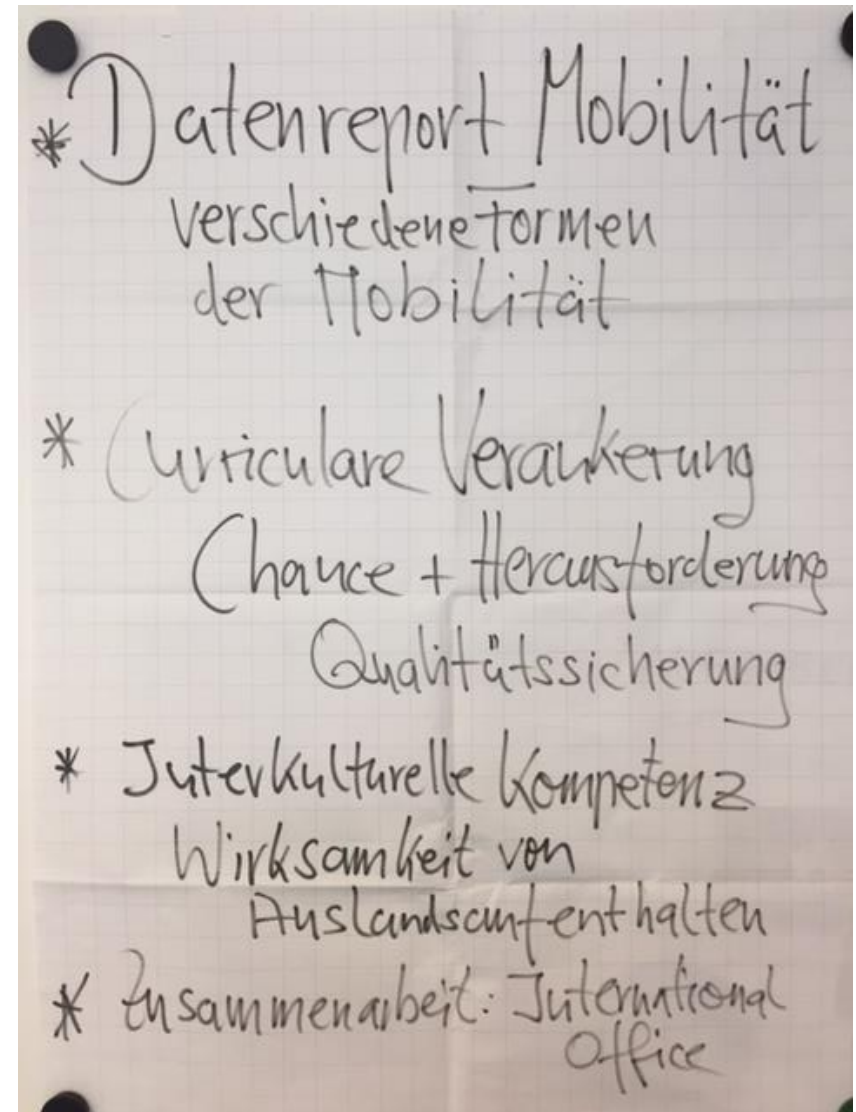 * Datenreport Mobilität
verschiedene Formen
der Mobilität
* Curriculare Verankerung
Chance + Herausforderung
Qualitätssicherung
* Interkulturelle Kompetenz
Wirksamkeit von
Auslandsaufenthalten
* Zusammenarbeit: International
Office